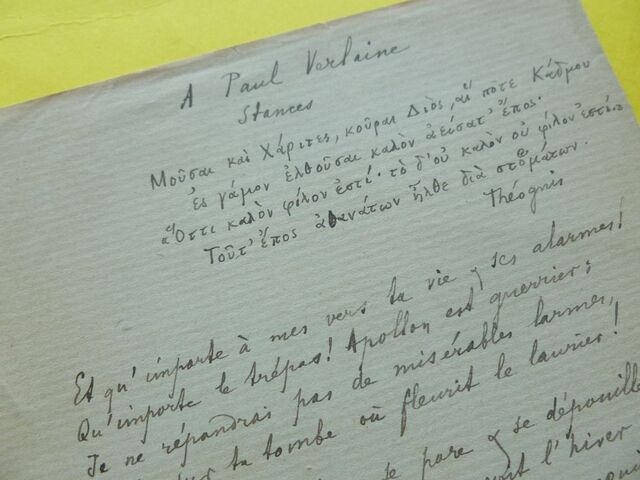 A Paul Verlaine
Stances
Μοῦσαι καὶ Χάριτες, κοῦραι Διὸς, αἵ ποτε Κάδμου
ἐς γάμον ἐλθοῦσαι καλὸν ἀείσατ' ἔπος·
"Ὅττι καλὸν φίλον ἐστί· τὸ δ'οὐ καλὸν οὐ φίλον ἐστί."
Τοῦτ' ἔπος ἀθανάτων ἦλθε διὰ στομάτων.
Théognis
Et qu'importe à mes vers ta vie & ses alarmes!
Qu'importe le trépas! Apollon est guerrier:
Je ne répandrai pas de misérables larmes,
ta tombe où fleurit le laurier!
se pare & se dépouille
l'hiver